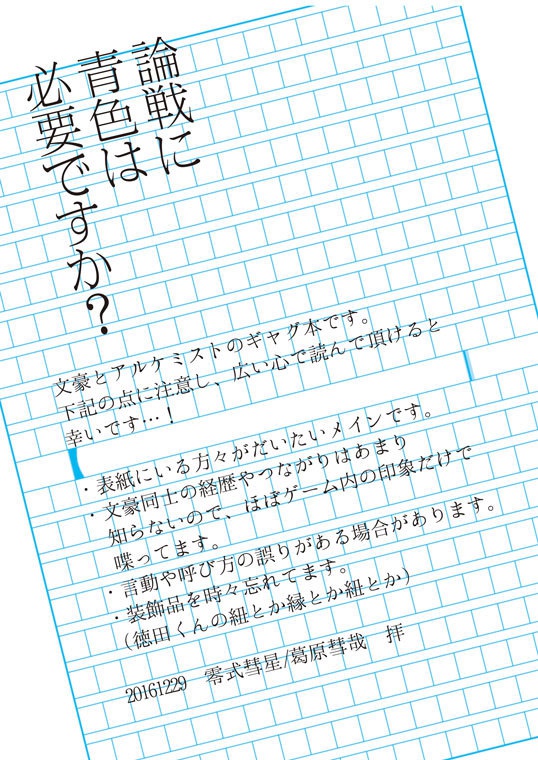 論戦に
青色は
必要ですか？
文豪とアルケミストのギャグ本です。
下記の点に注意し、広い心で読んで頂けると
幸いです…！
・表紙にいる方々がだいたいメインです。
・文豪同士の経歴やつながりはあまり
知らないので、ほぼゲーム内の印象だけで
喋ってます。
・言動や呼び方の誤りがある場合があります。
・装飾品を時々忘れてます。
（徳田くんの紐とか縁とか紐とか）
20161229　零式彗星/葛原彗哉　拝